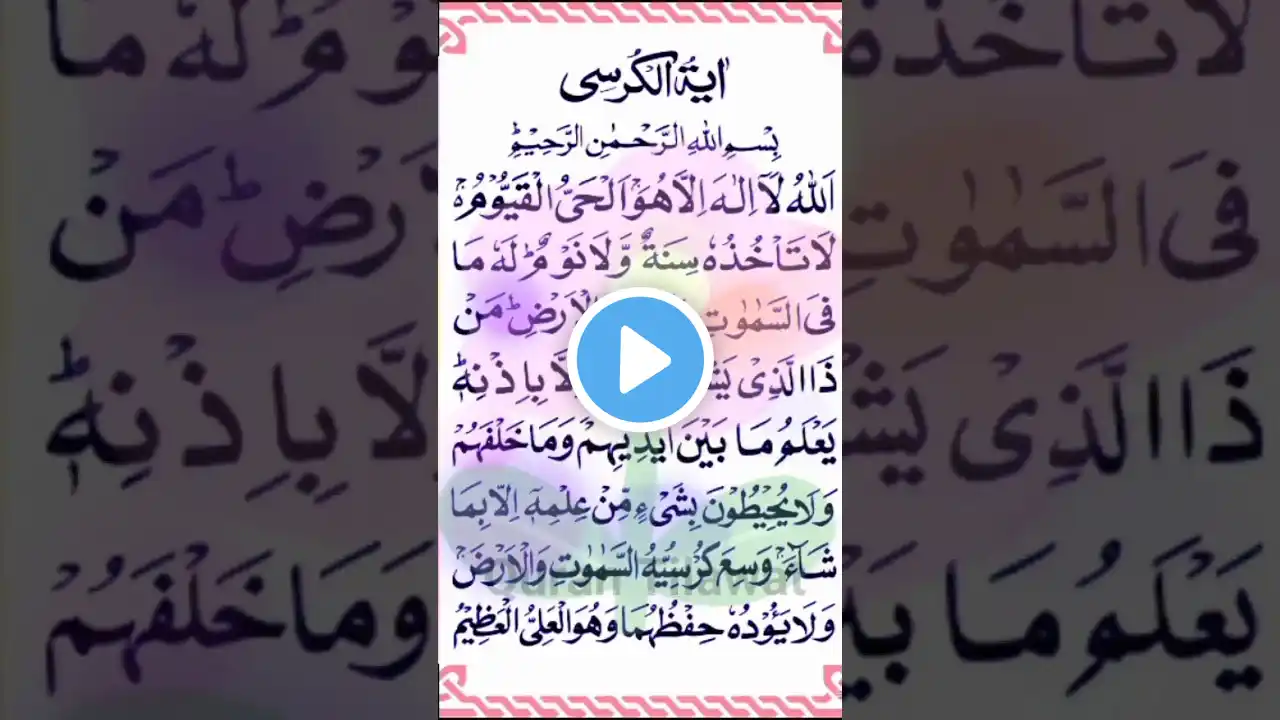 اٰیةُ الْکُرْسِی
بِسْمِ اللهِ الرَّحْمٰنِ الرَّحِیْمِ
اَللهُ لَاۤ اِلٰهَ اِلَّا هُوَۚ اَلْحَیُّ الْقَیُّوْمُ۬ۚ
لَا تَاْخُذُهٗ سِنَةٌ وَّلَا نَوْمٌؕ لَهٗ مَا
فِی السَّمٰوٰتِ الْاَرْضِؕ مَنْ
ذَا الَّذِیْ یَشْ اِلَّا بِاِذْنِهٖؕ
یَعْلَمُ مَا بَیْنَ اَیْدِیْهِمْ وَمَا خَلْفَهُمْ
وَلَا یُحِیْطُوْنَ بِشَیْءٍ مِّنْ عِلْمِهٖۤ اِلَّا بِمَا
شَآءَۚ وَسِعَ کُرْسِیُّهُ السَّمٰوٰتِ وَالْاَرْضَۚ
Quran Tilawat
وَلَا یَـُٔوْدُهٗ حِفْظُهُمَا وَهُوَ الْعَلِیُّ الْعَظِیْمُ